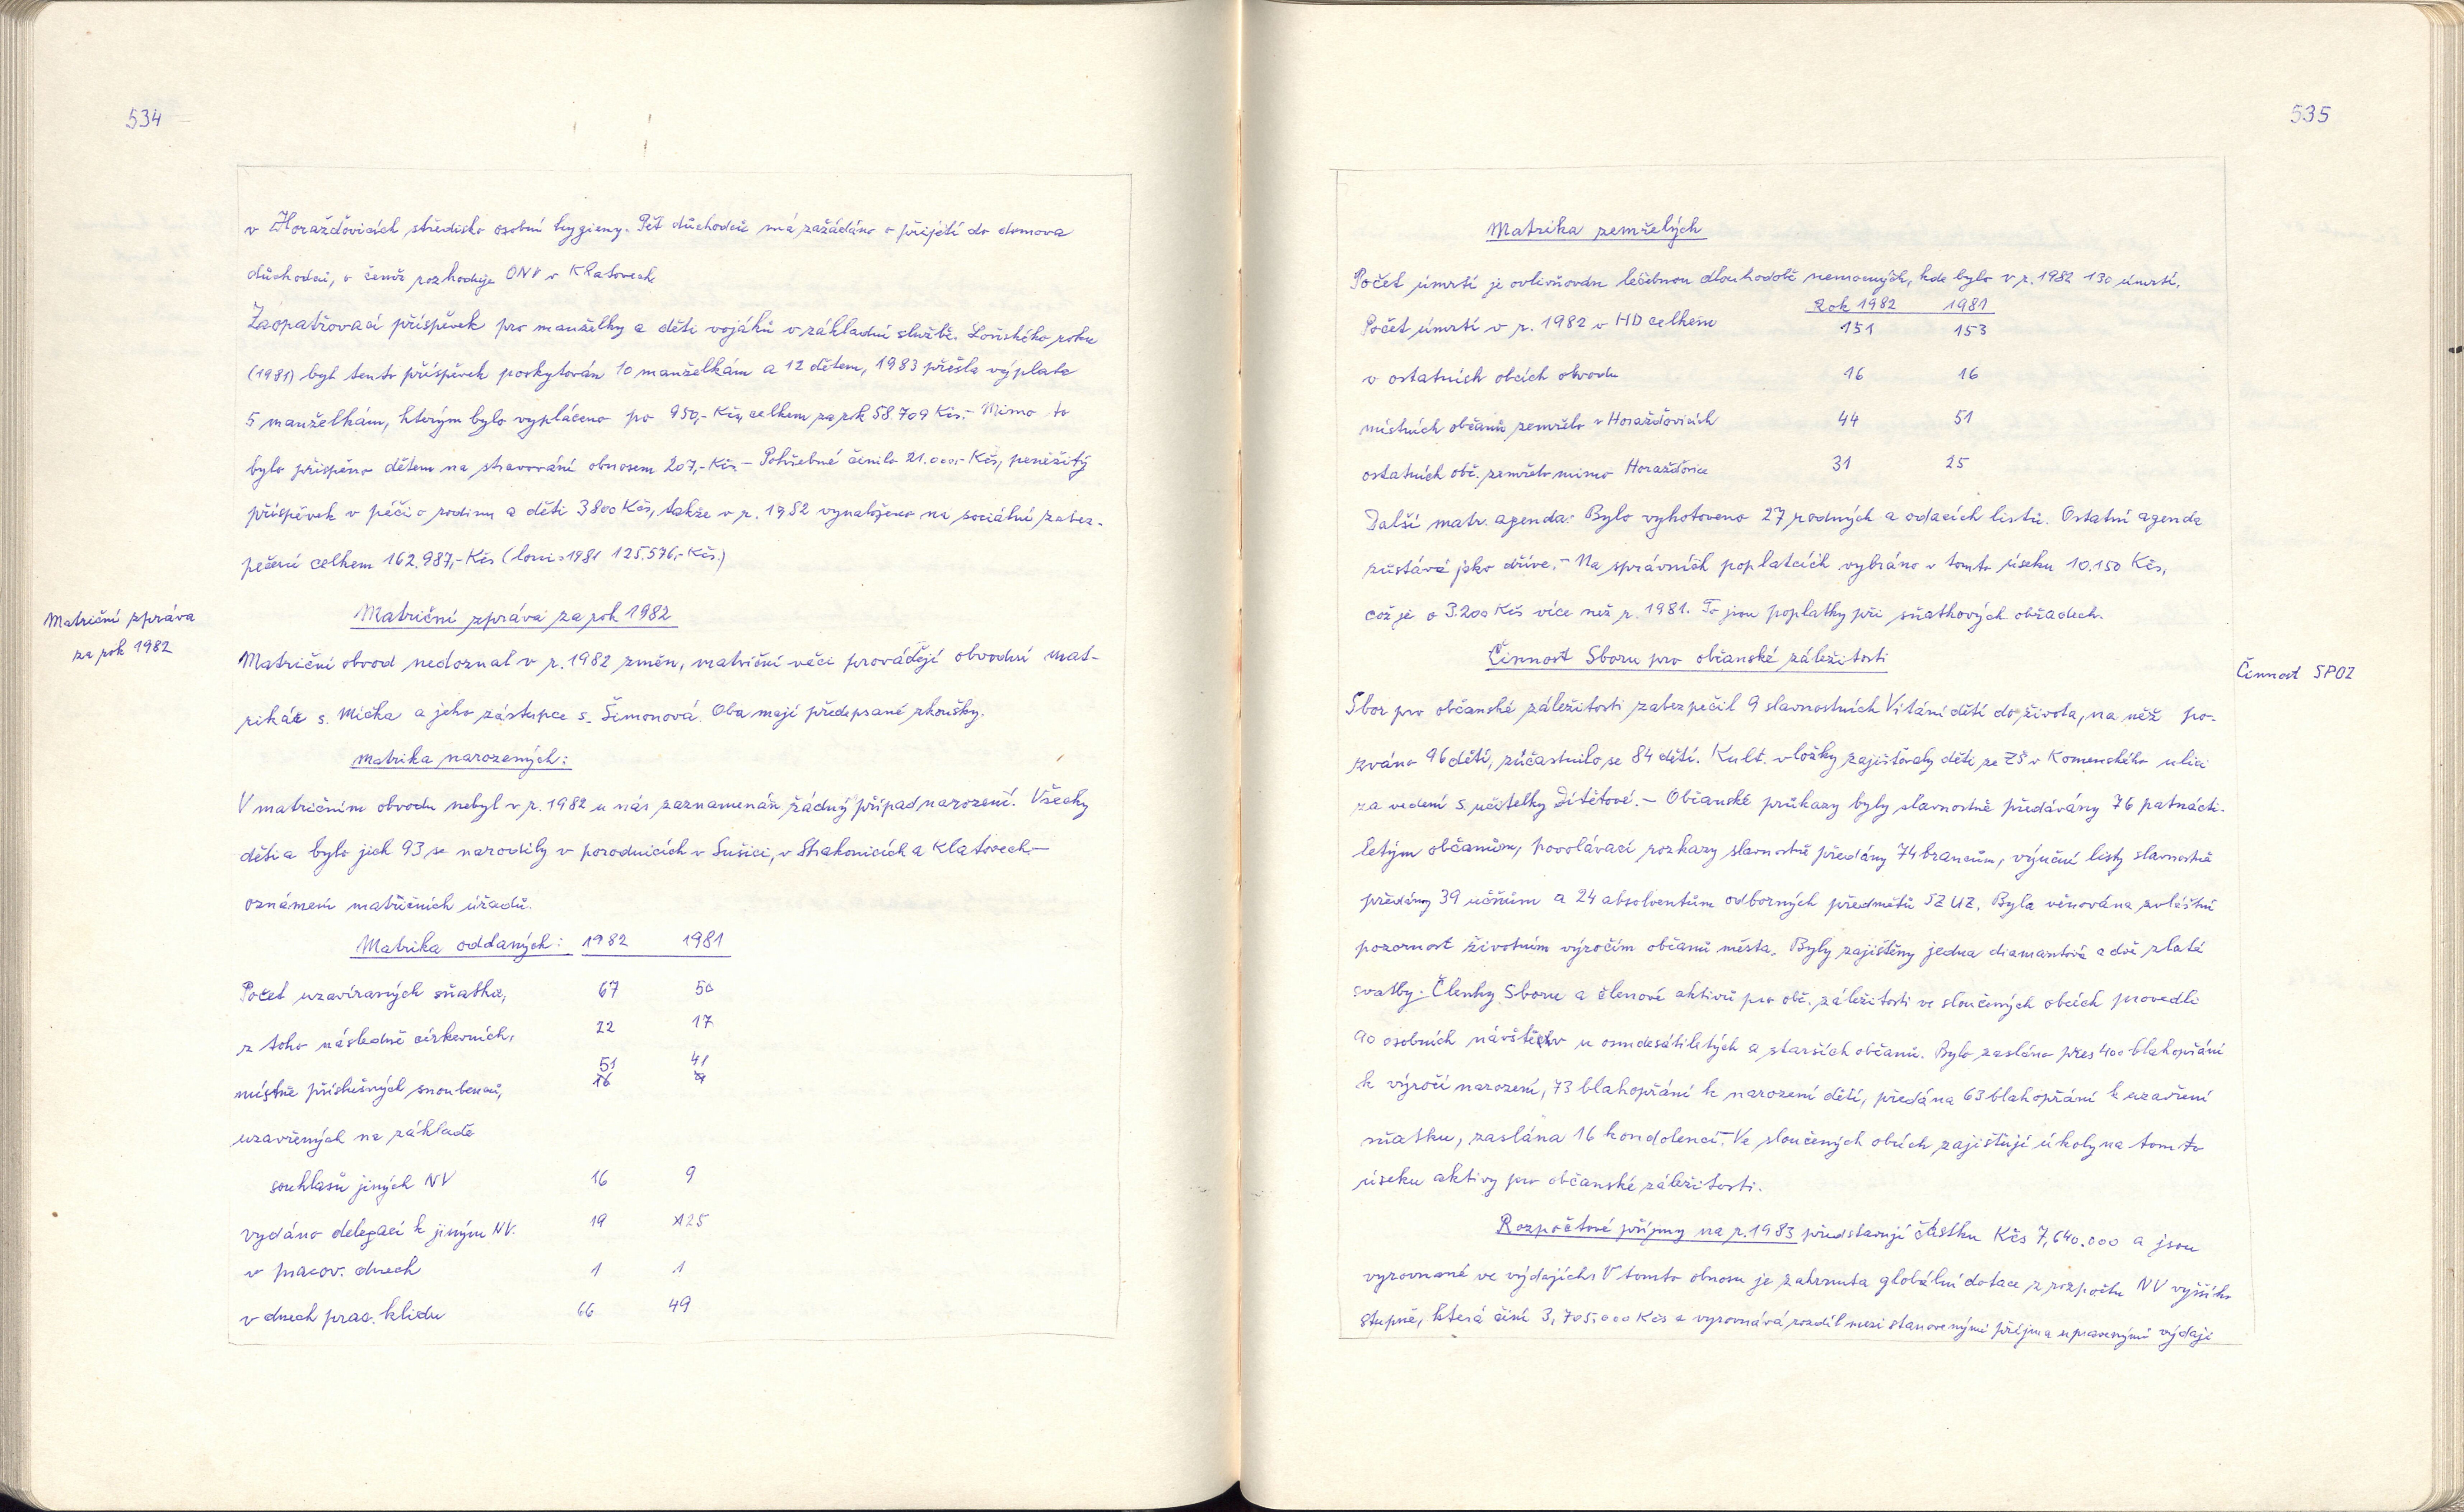 534
v Horažďovicích středisko osobní hygieny. Pět důchodců má zažádáno o přijetí do domova
důchodců, o čemž rozhoduje ONV v Klatovech
Zaopatřovací příspěvek pro manželky a děti vojáků v základní službě. Loňského roku
(1981) byl tento příspěvek poskytován 10 manželkám a 12 dětem, 1983 přešla výplata
5 manželkám, kterým bylo vypláceno po 950,- Kčs, celkem za rok 58.709 Kčs.- Mimo to
bylo přispěno dětem na stravování obnosem 207,- Kčs. - Pohřebné činilo 21.000,- Kčs, peněžitý
příspěvek v péči o rodinu a děti 3800 Kčs, takže v r. 1982 vynaloženo na sociální zabez-
pečení celkem 162.987,- Kčs (loni 1981 125.576,- Kčs.)
Matriční zpráva
za rok 1982
Matriční zpráva za rok 1982
Matriční obvod nedoznal v r. 1982 změn, matriční věci provádějí obvodní mat-
rikář s. Mička a jeho zástupce s. Šimonová. Oba mají předepsané zkoušky.
Matrika narozených:
V matričním obvodu nebyl v r. 1982 u nás zaznamenán žádný případ narození. Všechy
děti a bylo jich 93 se narodily v porodnicích v Sušici, v Strakonicích a Klatovech -
oznámení matričních úřadů.
Matrika oddaných: 1982 1981
Počet uzavíraných sňatků, 67 50
z toho následně církevních, 22 17
51 41
místně příslušných snoubenců, 16 9
uzavřených na základě
souhlasů jiných NV 16 9
vydáno delegací k jiným NV. 19 25
v pracov. dnech 1 1
v dnech prac. klidu 66 49
535
Matrika zemřelých
Počet úmrtí je ovlivňován léčebnou dlouhodobě nemocných, kde bylo v r. 1982 130 úmrtí.
Rok 1982 1981
Počet úmrtí v r. 1982 v HD celkem 151 153
v ostatních obcích obvodu 16 16
místních občanů zemřelo v Horažďovicích 44 51
ostatních obč. zemřelo mimo Horažďovice 31 25
Další matr. agenda: Bylo vyhotoveno 27 rodných a odacích listů. Ostatní agenda
zůstává jako dříve. - Na správních poplatcích vybráno v tomto úseku 10.150 Kčs,
což je o 3.200 Kčs více než r. 1981. To jsou poplatky při sňatkových obřadech.
Činnost Sboru pro občanské záležitosti
Činnost SPOZ
Sbor pro občanské záležitosti zabezpečil 9 slavnostních Vítání dětí do života, na něž po-
zváno 96 dětí, zúčastnilo se 84 dětí. Kult. vložky zajišťovaly děti ze ZŠ v Komenského ulici
za vedení s. učitelky Dítětové. - Občanské průkazy byly slavnostně předávány 76 patnácti-
letým občanům, povolávací rozkazy slavnostně předány 74 brancům, výuční listy slavnostně
předány 39 učňům a 24 absolventům odborných předmětů SZUZ. Byla věnována zvláštní
pozornost životním výročím občanů města. Byly zajištěny jedna diamantová a dvě zlaté
svatby. Členky Sboru a členové aktivů pro obč. záležitosti ve sloučených obcích provedli
90 osobních návštěv u osmdesátiletých a starších občanů. Bylo zasláno přes 400 blahopřání
k výročí narození, 73 blahopřání k narození dětí, předána 63 blahopřání k uzavření
sňatku, zaslána 16 kondolencí. Ve sloučených obcích zajišťují úkoly na tomto
úseku aktivy pro občanské záležitosti.
Rozpočtové příjmy na r. 1983 představují částku Kčs 7,640.000 a jsou
vyrovnané ve výdajích. V tomto obnosu je zahrnuta globální dotace z rozpočtu NV vyššího
stupně, která činí 3,705.000 Kčs a vyrovnává rozdíl mezi stanovenými příjmy a upravenými výdaji